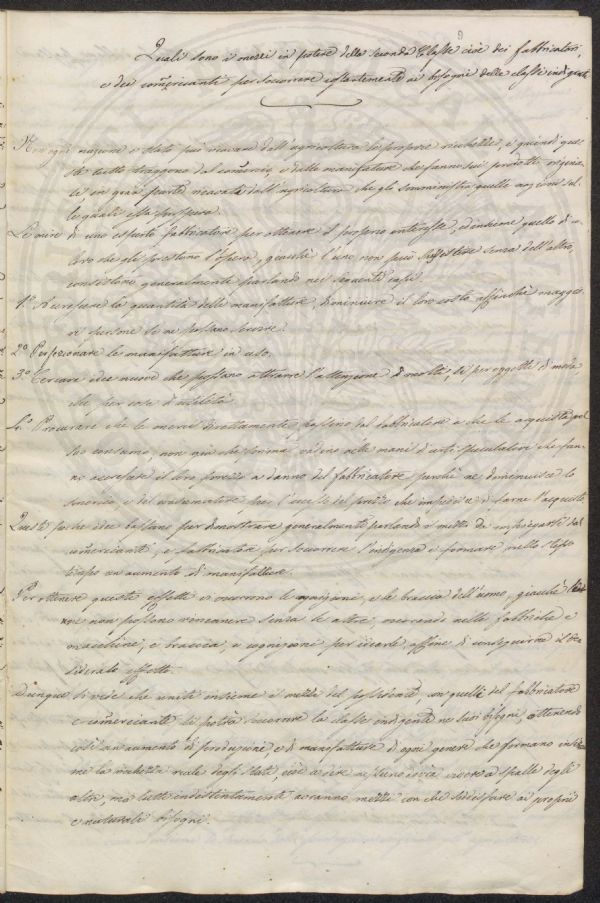 Quali sono i mezzi in potere della seconda Classe cioè dei fabbricatori,
e dei com̃ercianti per soccorrere costantemente ai bisogni della classe indigente
Non ogni nazione o stato può ricavare dall'agricoltura le proprie ricchezze, e quindi
tutto traggono dal com̃ercio, e dalle manifatture che fanno sui prodotti
in gran parte ricavata dall'agricoltura che gli somministra quelle nazioni sul
le quali essa prospera.
Le mire di uno esperto fabbricatore per ottenere il proprio interesse, ed insieme quello di co
loro che gli prestano l'opera, giacchè l'uno non può sussistere senza dell'altro,
consistono generalmente parlando nei seguenti capi
1.º Accrescere la quantità delle manifatture, diminuire il loro costo affinchè maggio
ri persone se ne possano servire.
2.º Perfezionare le manifatture in uso.
3.º Cercare idee nuove che possano attrarre l'attenzione di molti, sì per oggetti di moda,
che per cose d'utilità.
4.º Procurare che le merci direttamente passino dal fabbricatore a che le acquista pel
suo consumo, non già che prima vadino nelle mani d'avidi speculatori che fan-
no accrescere il loro prezzo a danno del fabbricatore perchè ne diminuisce lo
smercio, e del consumatore per l'eccesso del prezzo che impedisce di farne l'acquisto
Queste poche idee bastano per dimostrare generalmente parlando i mezzi da impiegarsi dal
com̃erciante, e fabbricatore per soccorrere l'indigenza e formare nello stesso
tempo un aumento di manifatture.
Per ottenere questi effetti vi occorrono le macchine, e le braccia dell'uomo, giacchè
non possono rimanere senza le altre, occorrendo nelle fabbriche e
macchine, e braccia, e cognizioni per usarle affine di conseguirne il de
siderato effetto.
Dunque si vede che uniti insieme i mezzi del possidente, con quelli del fabbricatore
e com̃erciante si potrà soccorrere la classe indigente nei suoi bisogni, ottenendo
così un aumento di produzione e di manifatture di ogni genere che formano insie
me la ricchezza reale degli stati, cioè a dire nessuno dovrà vivere a spalle degli
altri, ma tutti indistintamente avranno mezzi con che sodisfare ai proprii
e naturali bisogni.